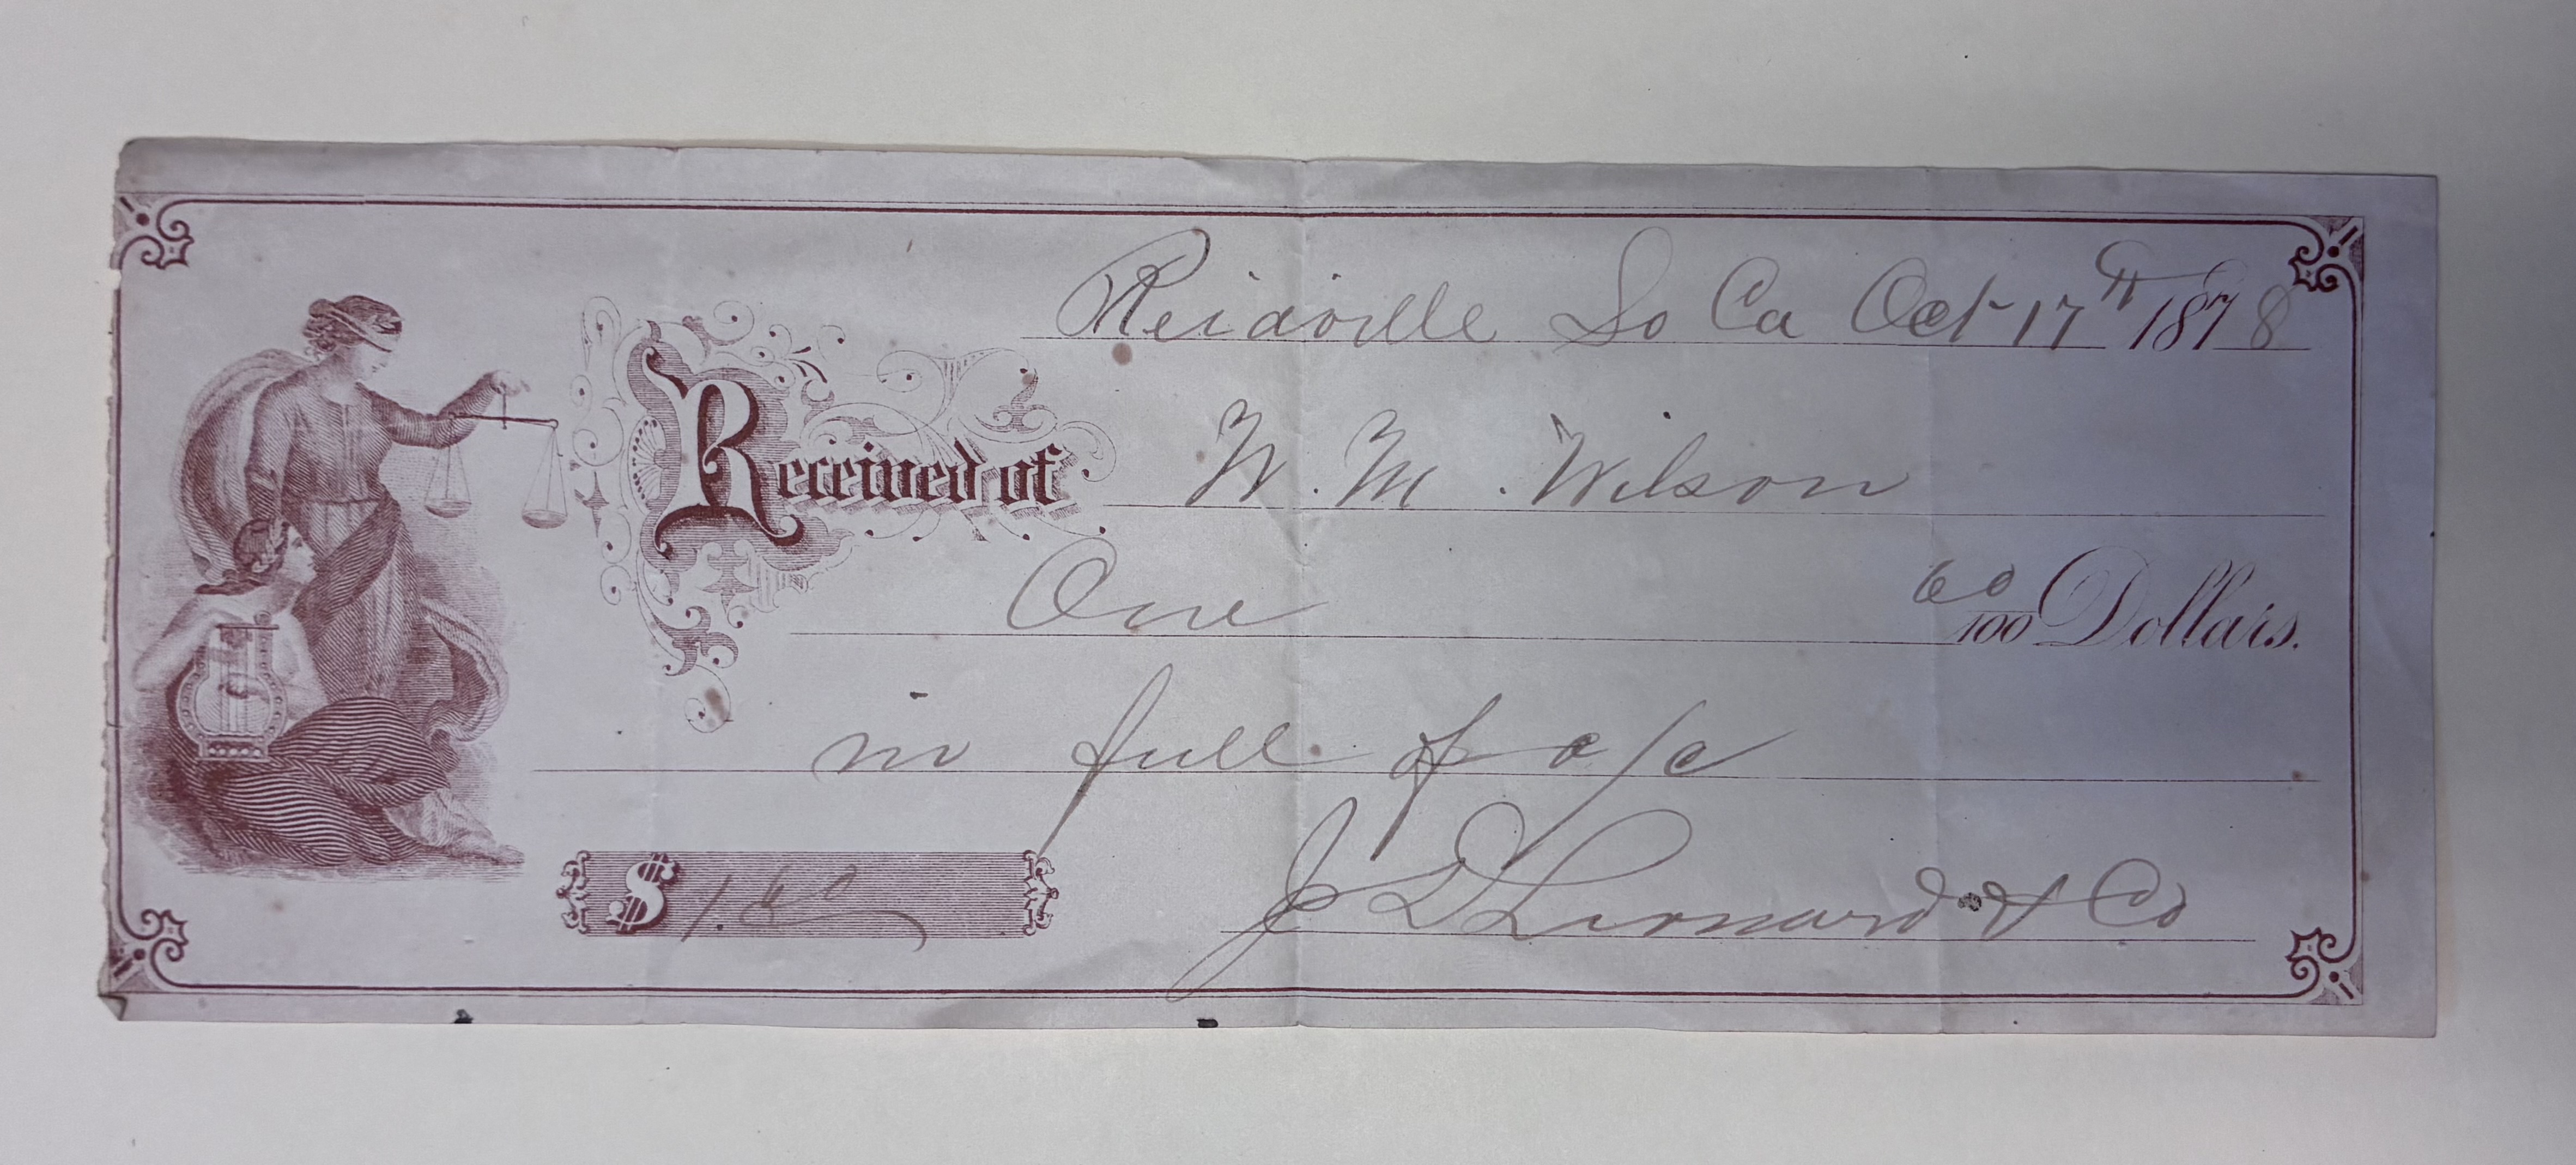 Reidville So Ca Oct 17th 1878
Received of W. M. Wilson
One 60/100 Dollars.
in full of a/c
$ 1.60
J D Leonard & Co